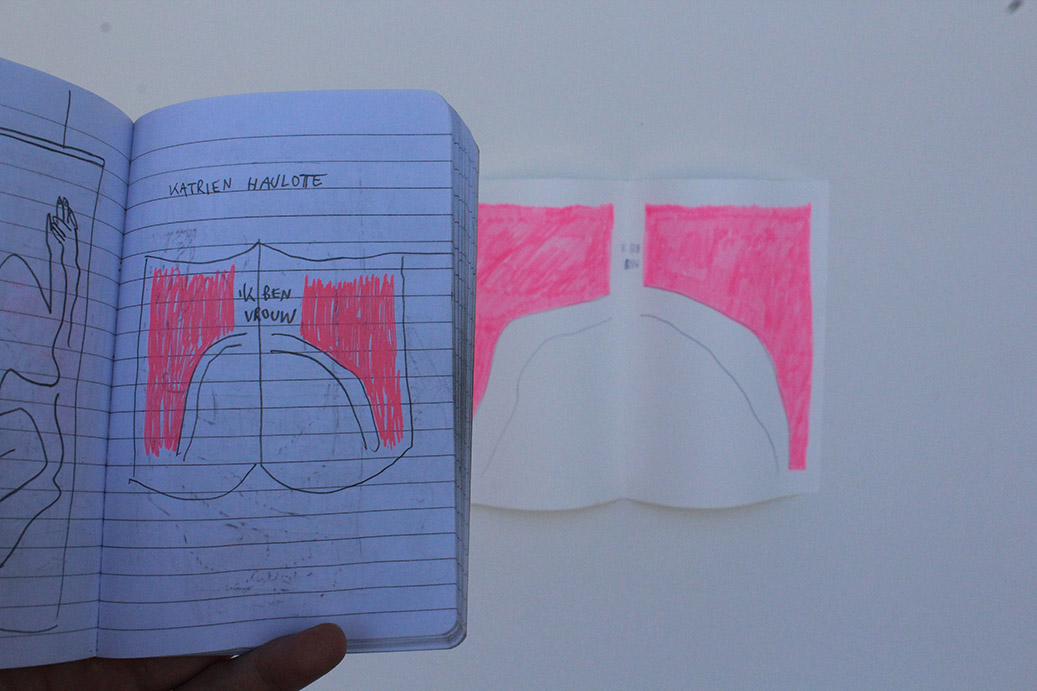 KATRIEN HAULOTTE
IK BEN
VROUW